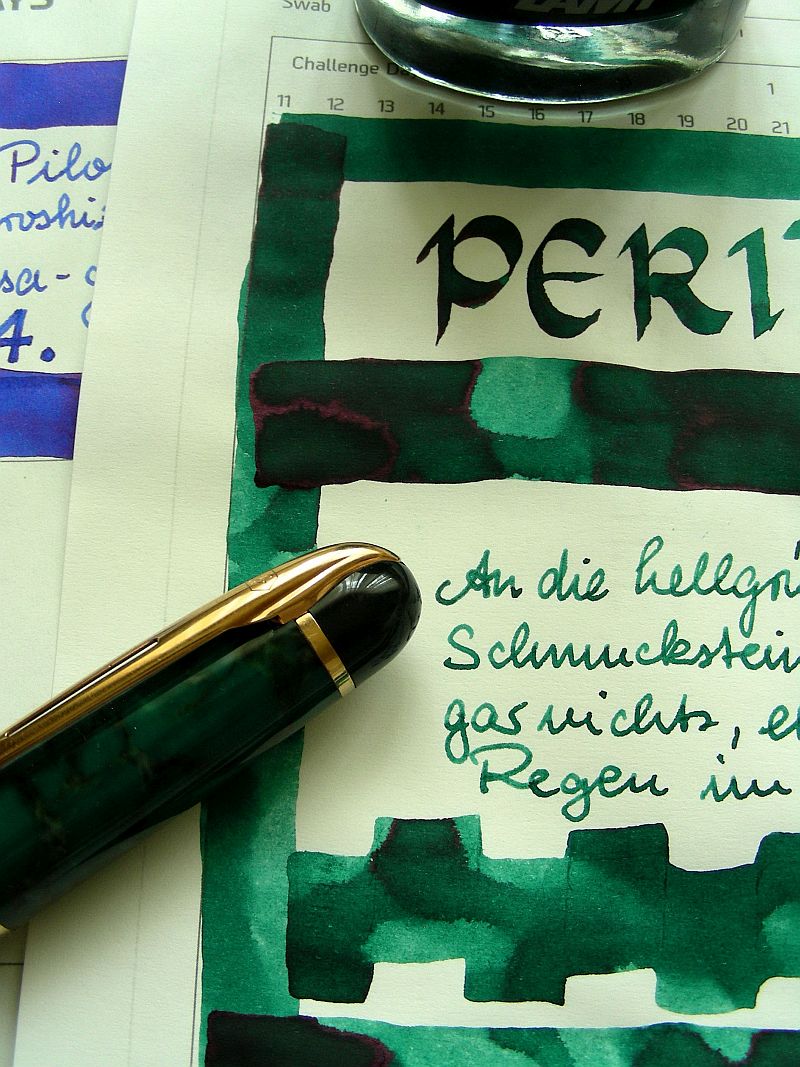 AYS
Swab
LAMY
Challenge Da
1
11 12 13 14 15 16 17 18 19 20 21
Pilo
roshi
sa-
4.
PERI
An die hellgrü
Schmuckstein
gar nichts, e
Regen im